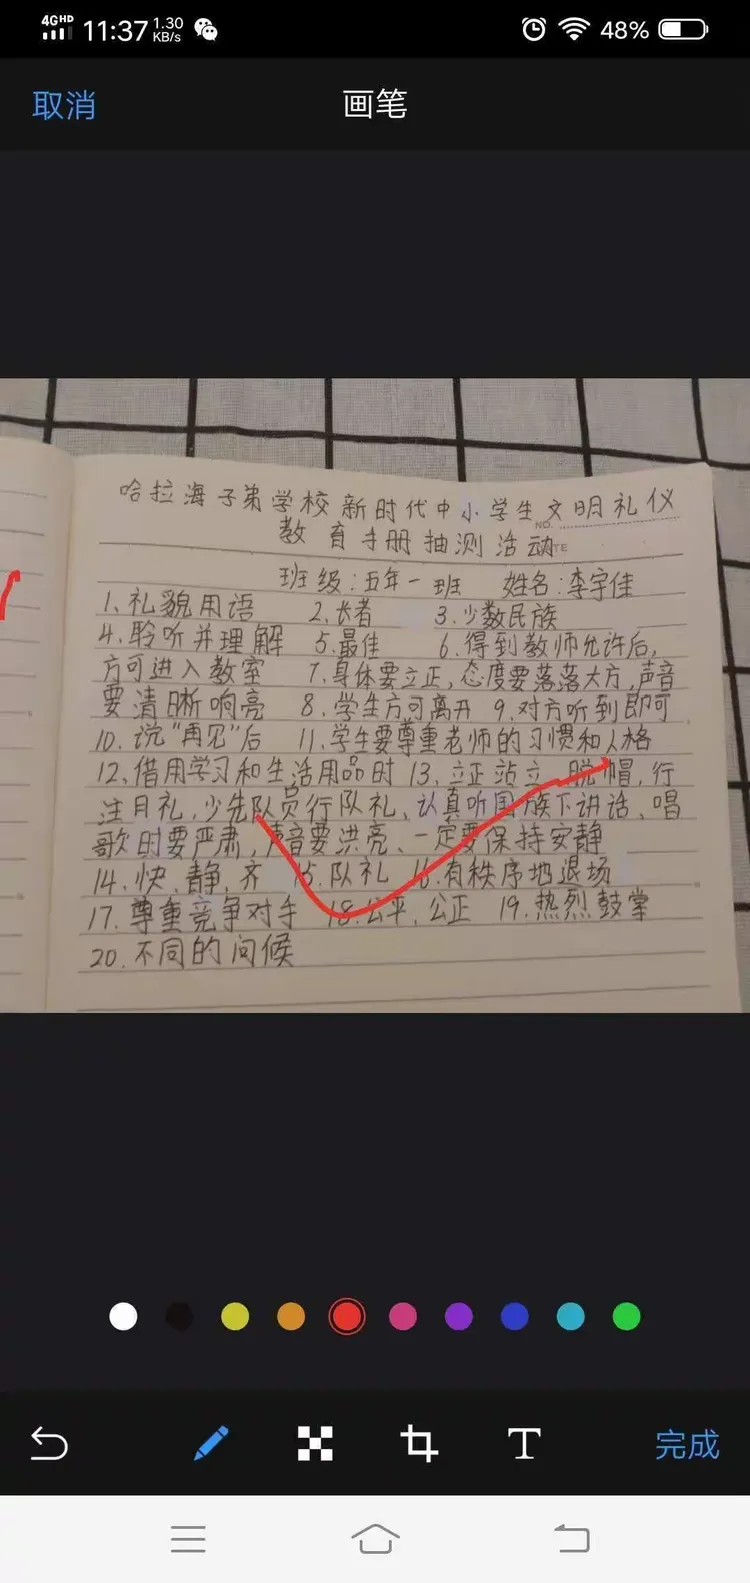 4GHD 11:37 1.30 KB/s 48%
取消 画笔
哈拉海子弟学校新时代中小学生文明礼仪
NO.
教育手册抽测活动
TE
班级:五年一班 姓名:李宇佳
1、礼貌用语 2、长者 3、少数民族
4、聆听并理解 5、最佳 6、得到教师允许后,
方可进入教室 7、身体要立正,态度要落落大方,声音
要清晰响亮 8、学生方可离开 9、对方听到即可
10、说“再见”后 11、学生要尊重老师的习惯和人格
12、借用学习和生活用品时 13、立正站立、脱帽,行
注目礼、少先队员行队礼、认真听国旗下讲话、唱
歌时要严肃,声音要洪亮、一定要保持安静
14、快、静、齐 15、队礼 16、有秩序地退场
17、尊重竞争对手 18、公平、公正 19、热烈鼓掌
20、不同的问候
T 完成